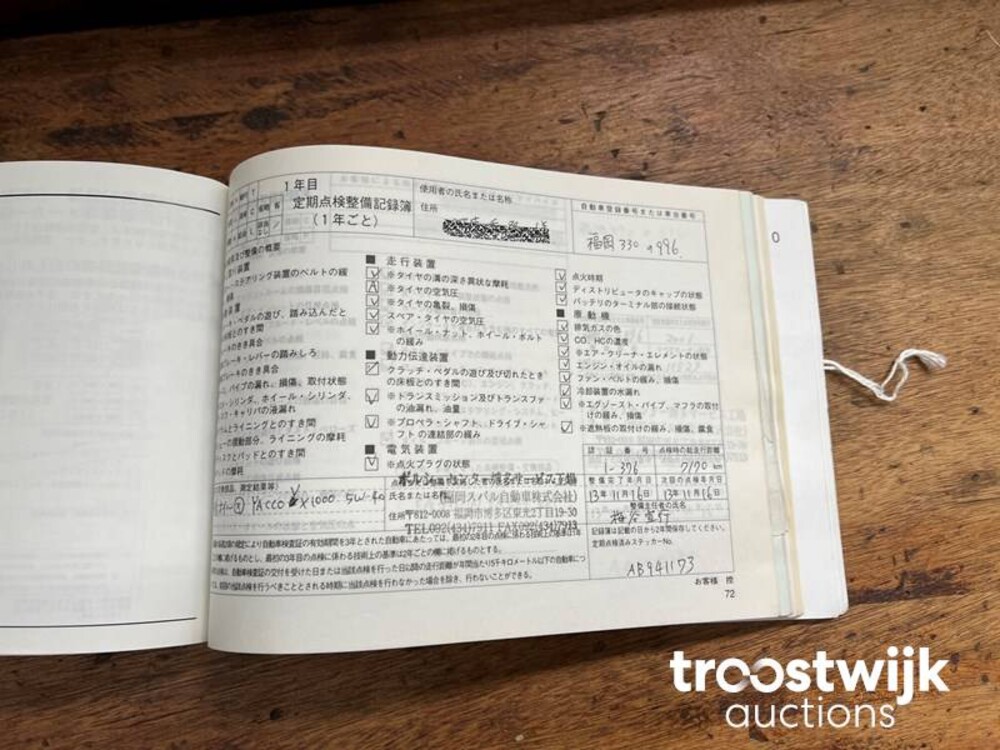 1年目
定期点検整備記録簿
(1年ごと)
使用者の氏名または名称
住所
自動車登録番号または車台番号
福岡 330 996
及び整備の概要
ステアリング装置のベルトの緩
ペダルの遊び、踏み込んだと
のきき具合
ブレーキ・レバーの踏みしろ
きき具合
パイプの漏れ、損傷、取付状態
シリンダ、ホイール・シリンダ、
ク・キャリパの液漏れ
ムとライニングとのすき間
ーの摺動部分、ライニングの摩耗
スクとパッドとのすき間
ドの摩耗
■ 走行装置
※タイヤの溝の深さ異状な摩耗
※タイヤの空気圧
※タイヤの亀裂、損傷
スペア・タイヤの空気圧
※ホイール・ナット、ホイール・ボルト
の緩み
■ 動力伝達装置
クラッチ・ペダルの遊び及び切れたとき
の床板とのすき間
※トランスミッション及びトランスファ
の油漏れ、油量
※プロペラ・シャフト、ドライブ・シャ
フトの連結部の緩み
■ 電気装置
※点火プラグの状態
点火時期
ディストリビュータのキャップの状態
バッテリのターミナル部の接続状態
■ 原動機
排気ガスの色
CO、HCの濃度
※エア・クリーナ・エレメントの状態
エンジン・オイルの漏れ
ファン・ベルトの緩み、損傷
冷却装置の水漏れ
※エグゾースト・パイプ、マフラの取付
けの緩み、損傷
※遮熱板の取付けの緩み、損傷、腐食
認証番号
点検時の総走行距離
1-396
7170 km
整備完了年月日
次回の点検年月日
13年11月16日
13年11月16日
整備主任者の氏名
YACCO X1000 5W-40
氏名または名称
福岡スバル自動車株式会社
住所 〒812-0008 福岡市博多区東光2丁目19-30
TEL092(434)7911 FAX092(434)7913
記録簿は記載の日から2年間保存してください。
定期点検済みステッカーNo.
AB941173
の規定により自動車検査証の有効期間を3年とされた自動車にあたっては、最初の2年目の点検に係わる技術上の基準は1年ご
に掲げるものとし、最初の3年目の点検に係わる技術上の基準は2年ごとの欄に掲げるものとする。
は、自動車検査証の交付を受けた日又は当該点検を行った日以降の走行距離が年間当たり5千キロメートル以下の自動車につ
前回の当該点検を行うべきこととされる時期に当該点検を行わなかった場合を除き、行わないことができる。
お客様 控
72
0
troostwijk
auctions